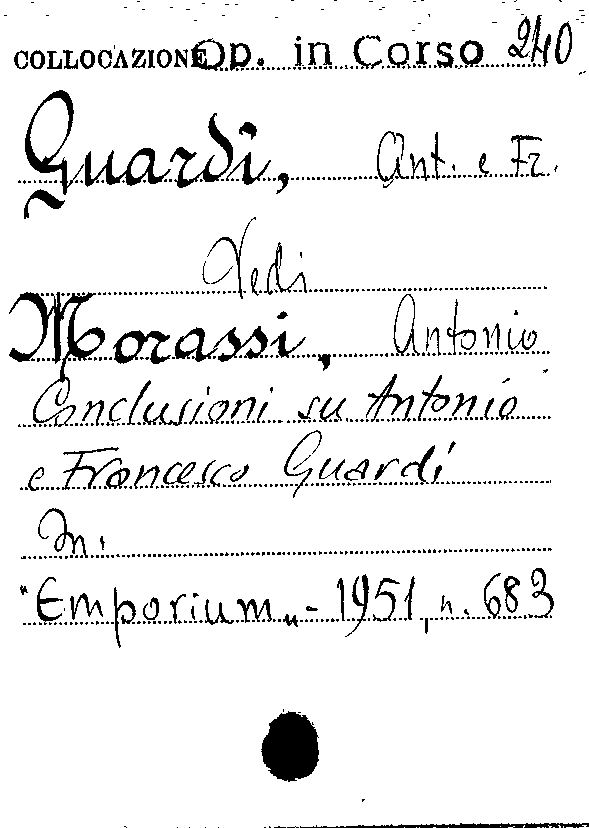 COLLOCAZIONE Op. in Corso 240
Guardi, Ant. e Fr.
Vedi
Morassi, Antonio
Conclusioni su Antonio
e Francesco Guardi
In:
"Emporium" - 1951, n. 683